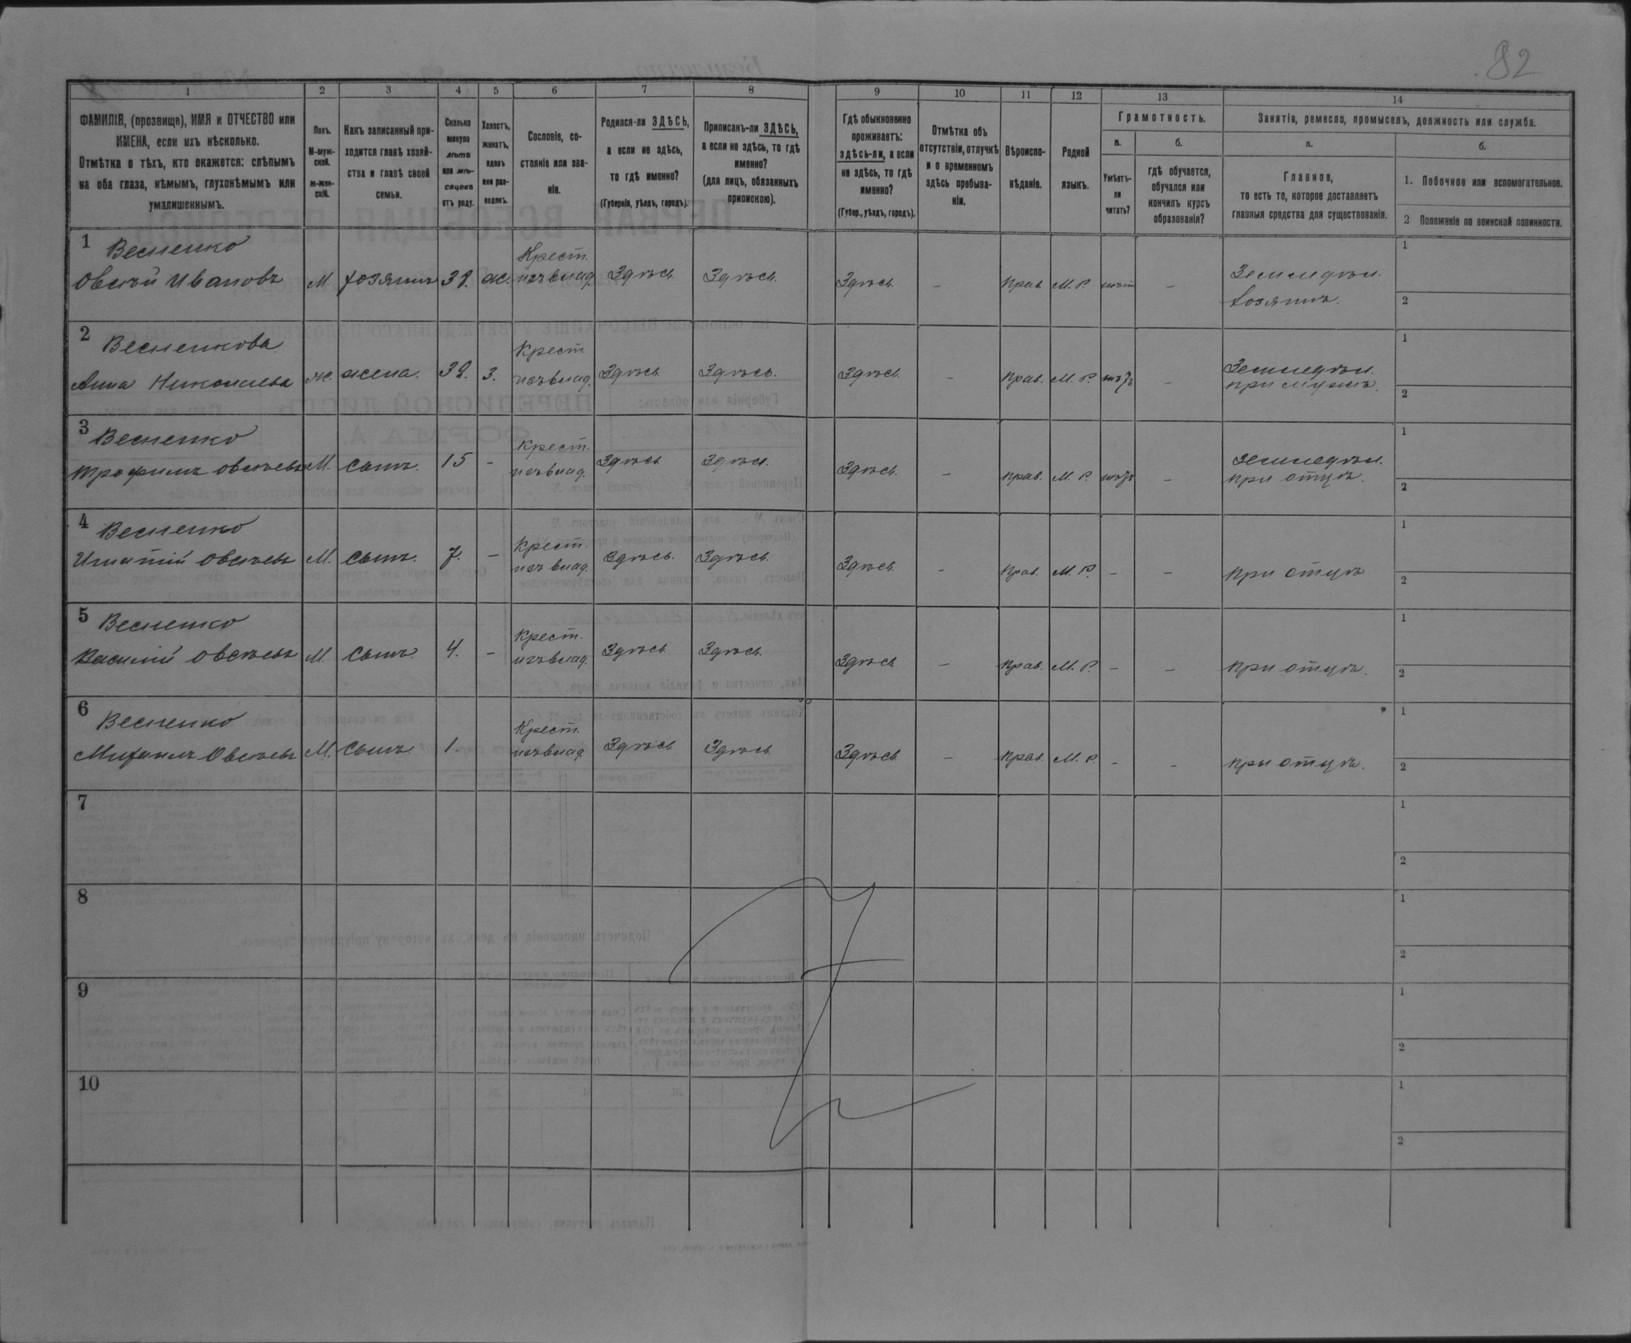 82
1 2 3 4 5 6 7 8 9 10 11 12 13 14
ФАМИЛІЯ, (прозвище), ИМЯ и ОТЧЕСТВО или
ИМЕНА, если ихъ нѣсколько.
Отмѣтка о тѣхъ, кто окажется: слѣпымъ
на оба глаза, нѣмымъ, глухонѣмымъ или
умалишеннымъ.
Полъ.
М-муж-
ской.
ж-жен-
скій.
Какъ записанный при-
ходится главѣ хозяй-
ства и главѣ своей
семьи.
Сколько
минуло
лѣтъ
или мѣ-
сяцевъ
отъ роду.
Холостъ,
женатъ,
вдовъ
или раз-
веденъ.
Сословіе, со-
стояніе или зва-
ніе.
Родился-ли ЗДѢСЬ,
а если не здѣсь,
то гдѣ именно?
(Губернія, уѣздъ, городъ).
Приписанъ-ли ЗДѢСЬ,
а если не здѣсь, то гдѣ
именно?
(для лицъ, обязанныхъ
припискою).
Гдѣ обыкновенно
проживаетъ:
здѣсь-ли, а если
не здѣсь, то гдѣ
именно?
(Губер., уѣздъ, городъ).
Отмѣтка объ
отсутствіи, отлучкѣ
и о временномъ
здѣсь пребыва-
ніи.
Вѣроиспо-
вѣданіе.
Родной
языкъ.
Грамотность.
а.
Умѣетъ-
ли
читать?
б.
гдѣ обучается,
обучался или
кончилъ курсъ
образованія?
Занятія, ремесло, промыселъ, должность или служба.
а.
Главное,
то есть то, которое доставляетъ
главныя средства для существованія.
б.
1. Побочное или вспомогательное.
2 Положеніе по воинской повинности.
1 Весненко Крест.
Овсѣй Ивановъ М хозяинъ 39. ж. Здѣсь Здѣсь. Здѣсь — Прав. М. Р. нѣт — Земледѣл.
хозяинъ. 1 2
2 Весненкова Крест
Анна Николаева ж. жена. 39. з. Здѣсь Здѣсь. Здѣсь — Прав. М. Р. нѣтъ — Земледѣл.
при мужѣ. 1 2
3 Весненко Крест.
Трофимъ Овсѣевъ М. сынъ. 15 — Здѣсь Здѣсь. Здѣсь — Прав. М. Р. нѣтъ — Земледѣл.
при отцѣ. 1 2
4 Весненко Крест.
Игнатій Овсѣевъ М. сынъ. 7. — Здѣсь. Здѣсь. Здѣсь — Прав. М. Р. — — при отцѣ 1 2
5 Весненко Крест.
Василій Овсѣевъ М. сынъ. 4. — Здѣсь Здѣсь. Здѣсь — Прав. М. Р. — — при отцѣ. 1 2
6 Весненко Крест.
Михаилъ Овсѣевъ М. сынъ 1. Здѣсь Здѣсь Здѣсь — Прав. М. Р. — — при отцѣ. 1 2
7 1 2
8 1 2
9 1 2
10 1 2